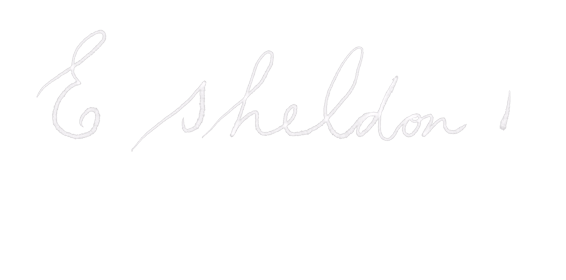 E sheldon !